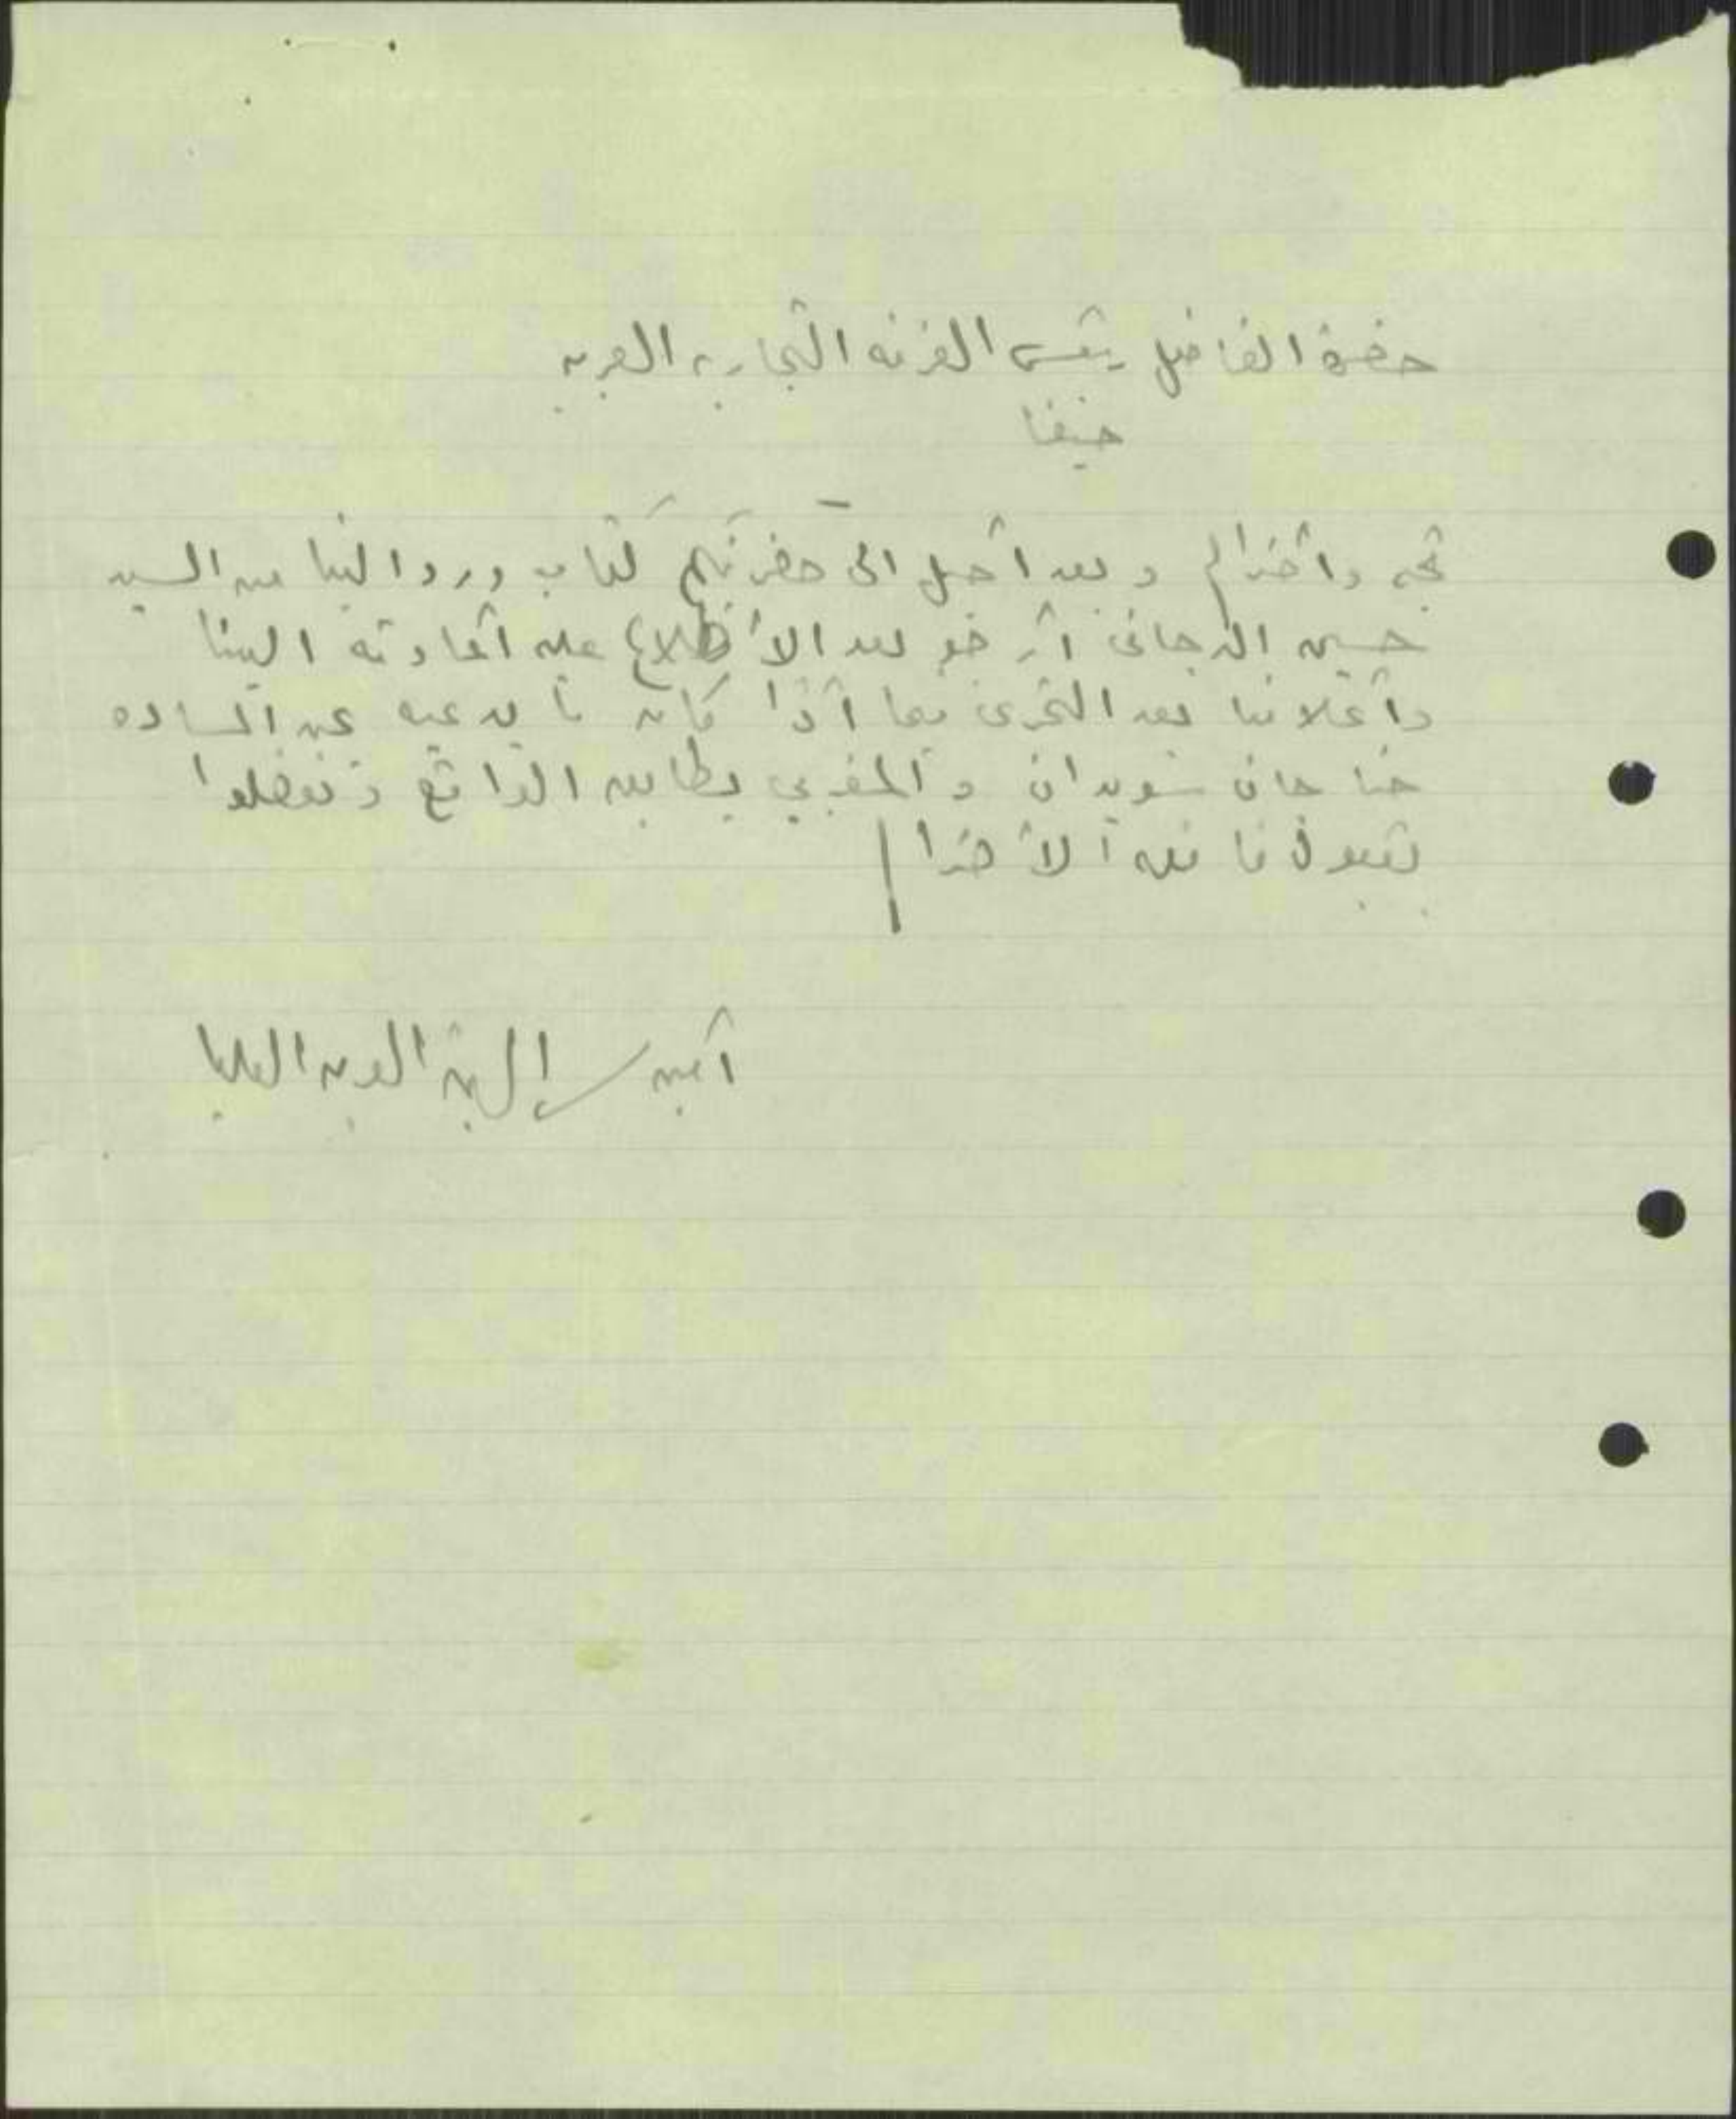 حضرة الفاضل رئيس الغرفه التجاريه العربيه
حيفا
تحيه وأحترام وبعد أحيل الى حضرتكم كتاب ورد الينا من السيد
حسين الدجاني أرجو بعد الأطلاع عليه أعادته الينا
وأعلامنا بعد التحري فيما أذا كان ما يدعيه عن الساده
حنا جان سويدان والمغربي يطابق الواقع وتفضلوا
بقبول فائق الأحترام
أمين سر اللجنة العربيه العليا